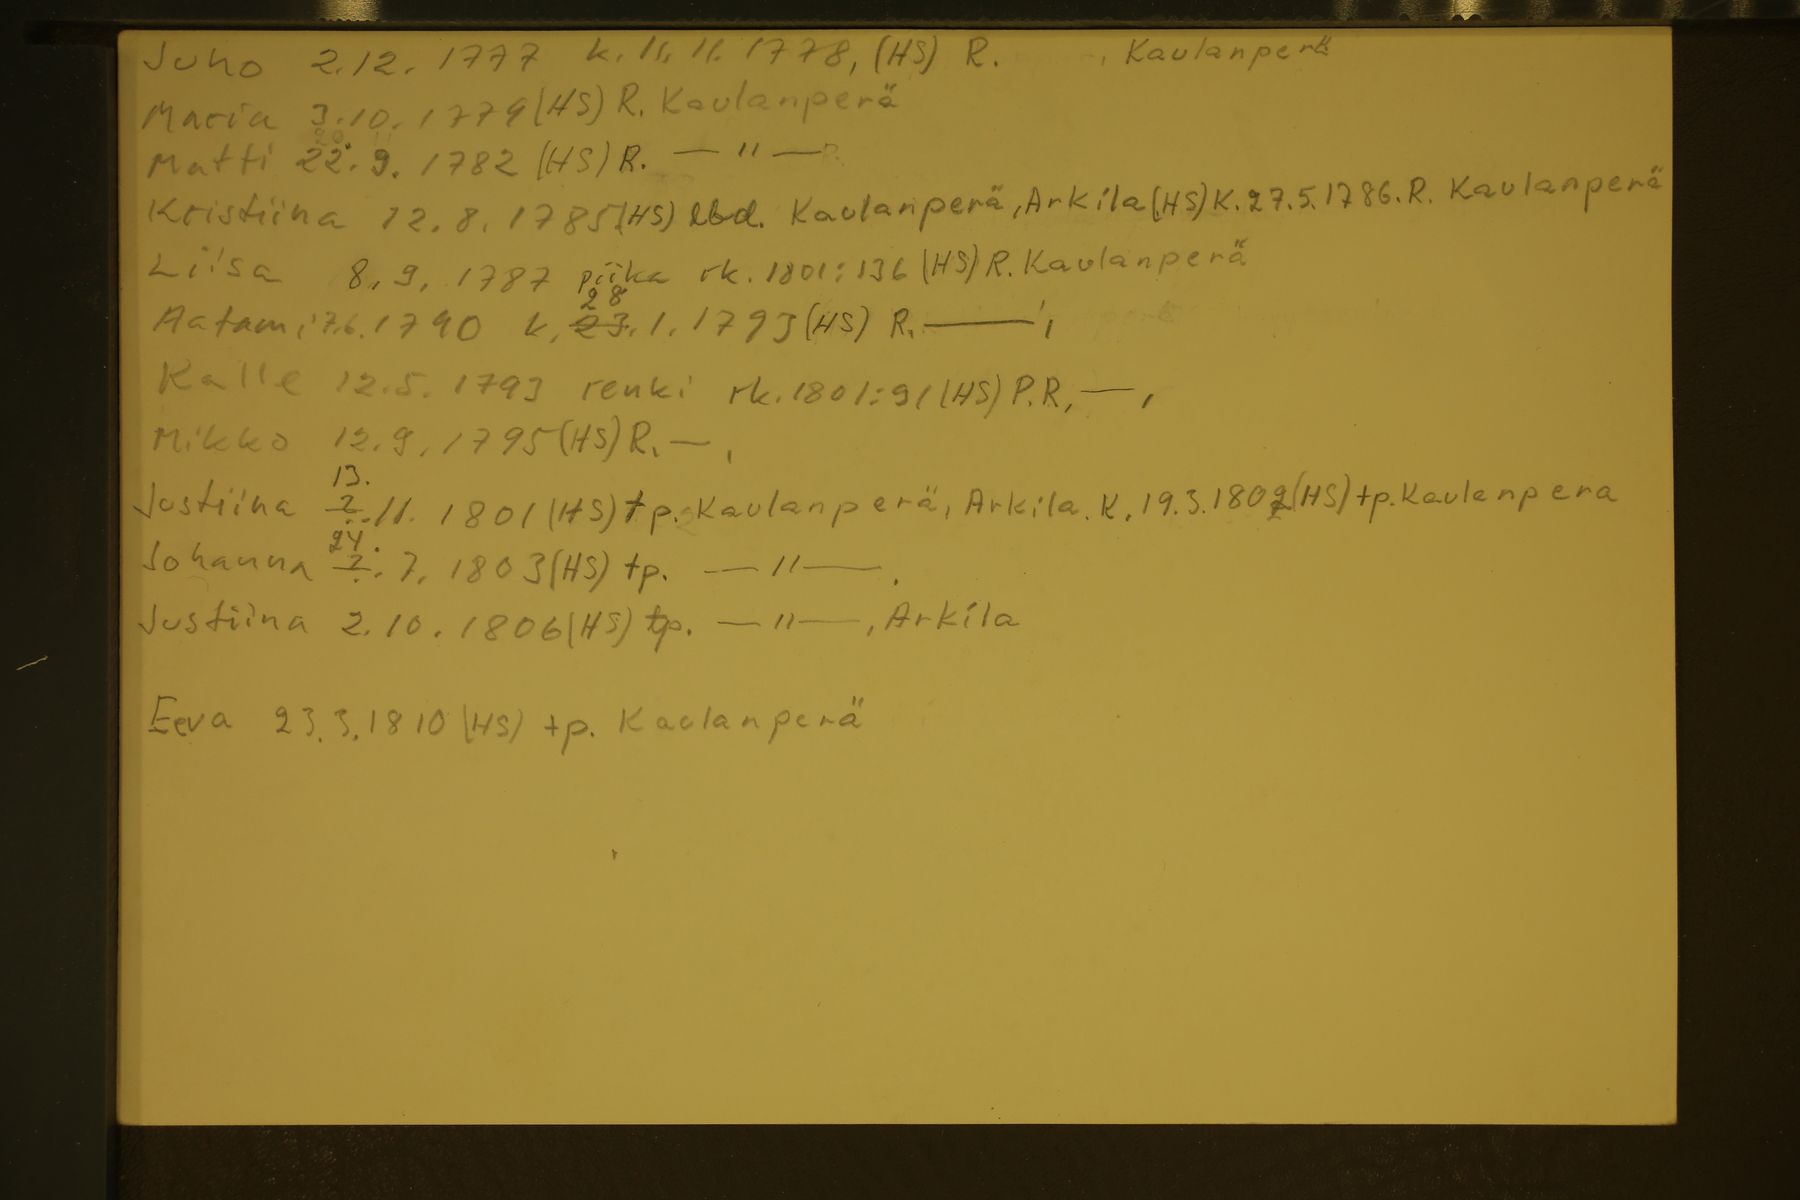 Juho 2.12. 1777 k. 11. 11. 1778, (HS) R. , Kaulanperä
Maria 3.10. 1779 (HS) R. Kaulanperä
Matti 22. 9. 1782 (HS) R. — " —
Kristiina 12. 8. 1785 (HS) lbd. Kaulanperä, Arkila (HS) K. 27.5.1786. R. Kaulanperä
Liisa 8. 9. 1787 piika rk. 1801:136 (HS) R. Kaulanperä
28
Aatami 7.6. 1790 k. 23. 1. 1793 (HS) R. ———,
Kalle 12.5. 1793 renki rk. 1801:91 (HS) P.R. —,
Mikko 12.9. 1795 (HS) R. —,
13.
Justiina ?. 11. 1801 (HS) tp. Kaulanperä, Arkila. K. 19.3.1802 (HS) tp. Kaulanpera
24.
Johanna ?. 7. 1803 (HS) tp. — " —.
Justiina 2. 10. 1806 (HS) tp. — " —, Arkila
Eeva 23. 3. 1810 (HS) tp. Kaulanperä